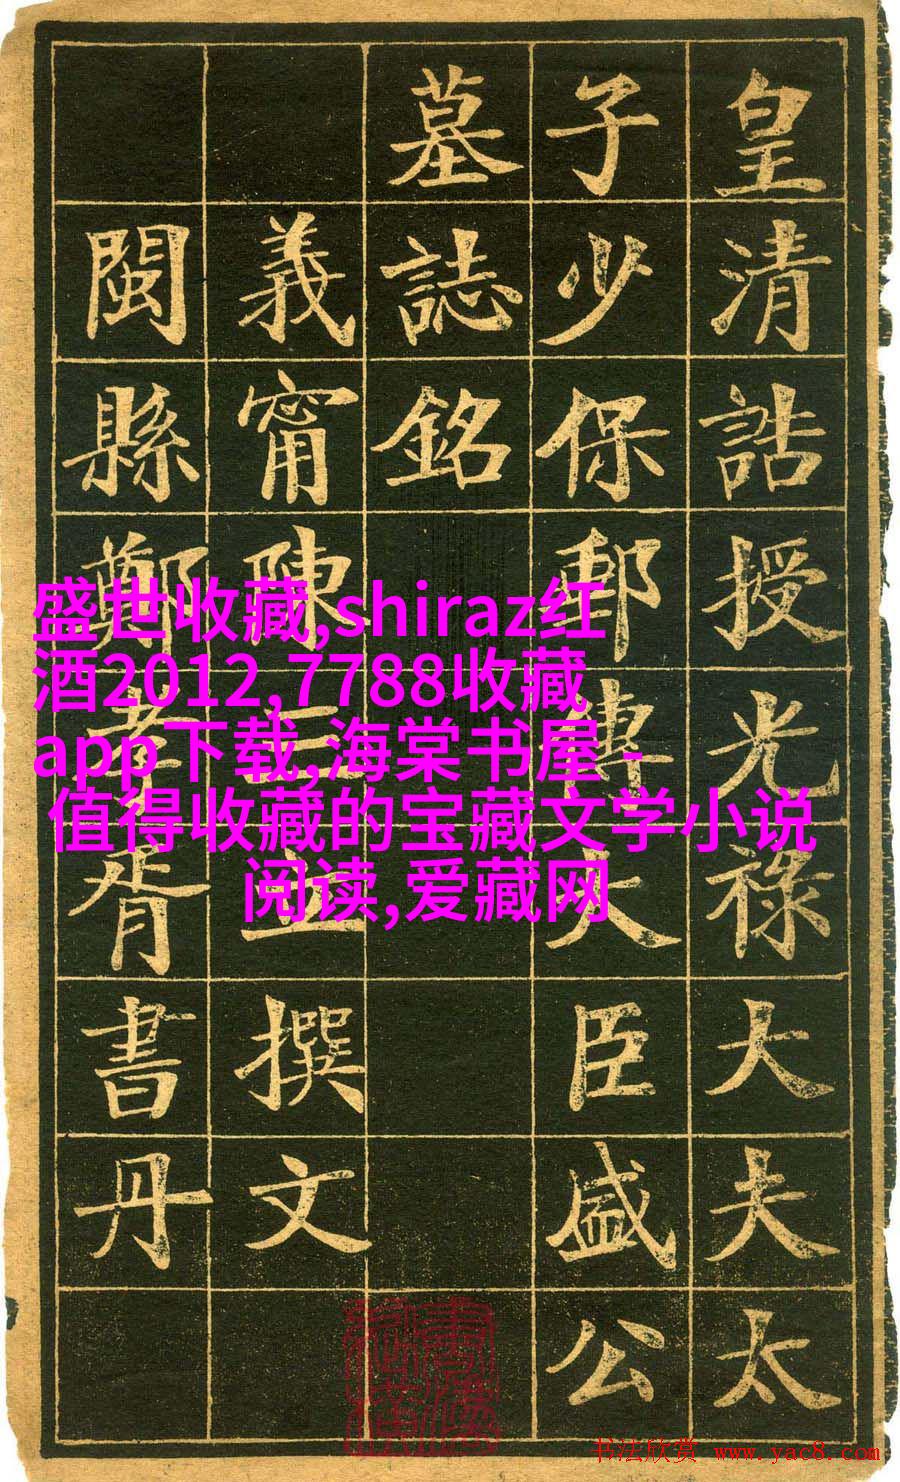 皇清誥授光祿大夫太
子少保郵傳大臣盛公
墓誌銘
義甯陳三立撰文
閩縣鄭孝胥書丹
盛世收藏,shiraz红
酒2012,7788收藏
app下载,海棠书屋 -
值得收藏的宝藏文学小说
阅读,爱藏网
书法欣赏 www.yac8.com